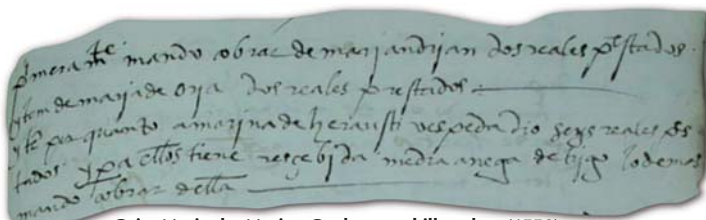 pimeramte mando cobrar de mari andijan dos reales pestados.
ytem de maria de oria dos reales prestados
yte por quanto a marina de herausti vespeda dio seys reales pes
tados. y pa ellos tiene resçebida media anega de trigo lo demas
mando cobrar della